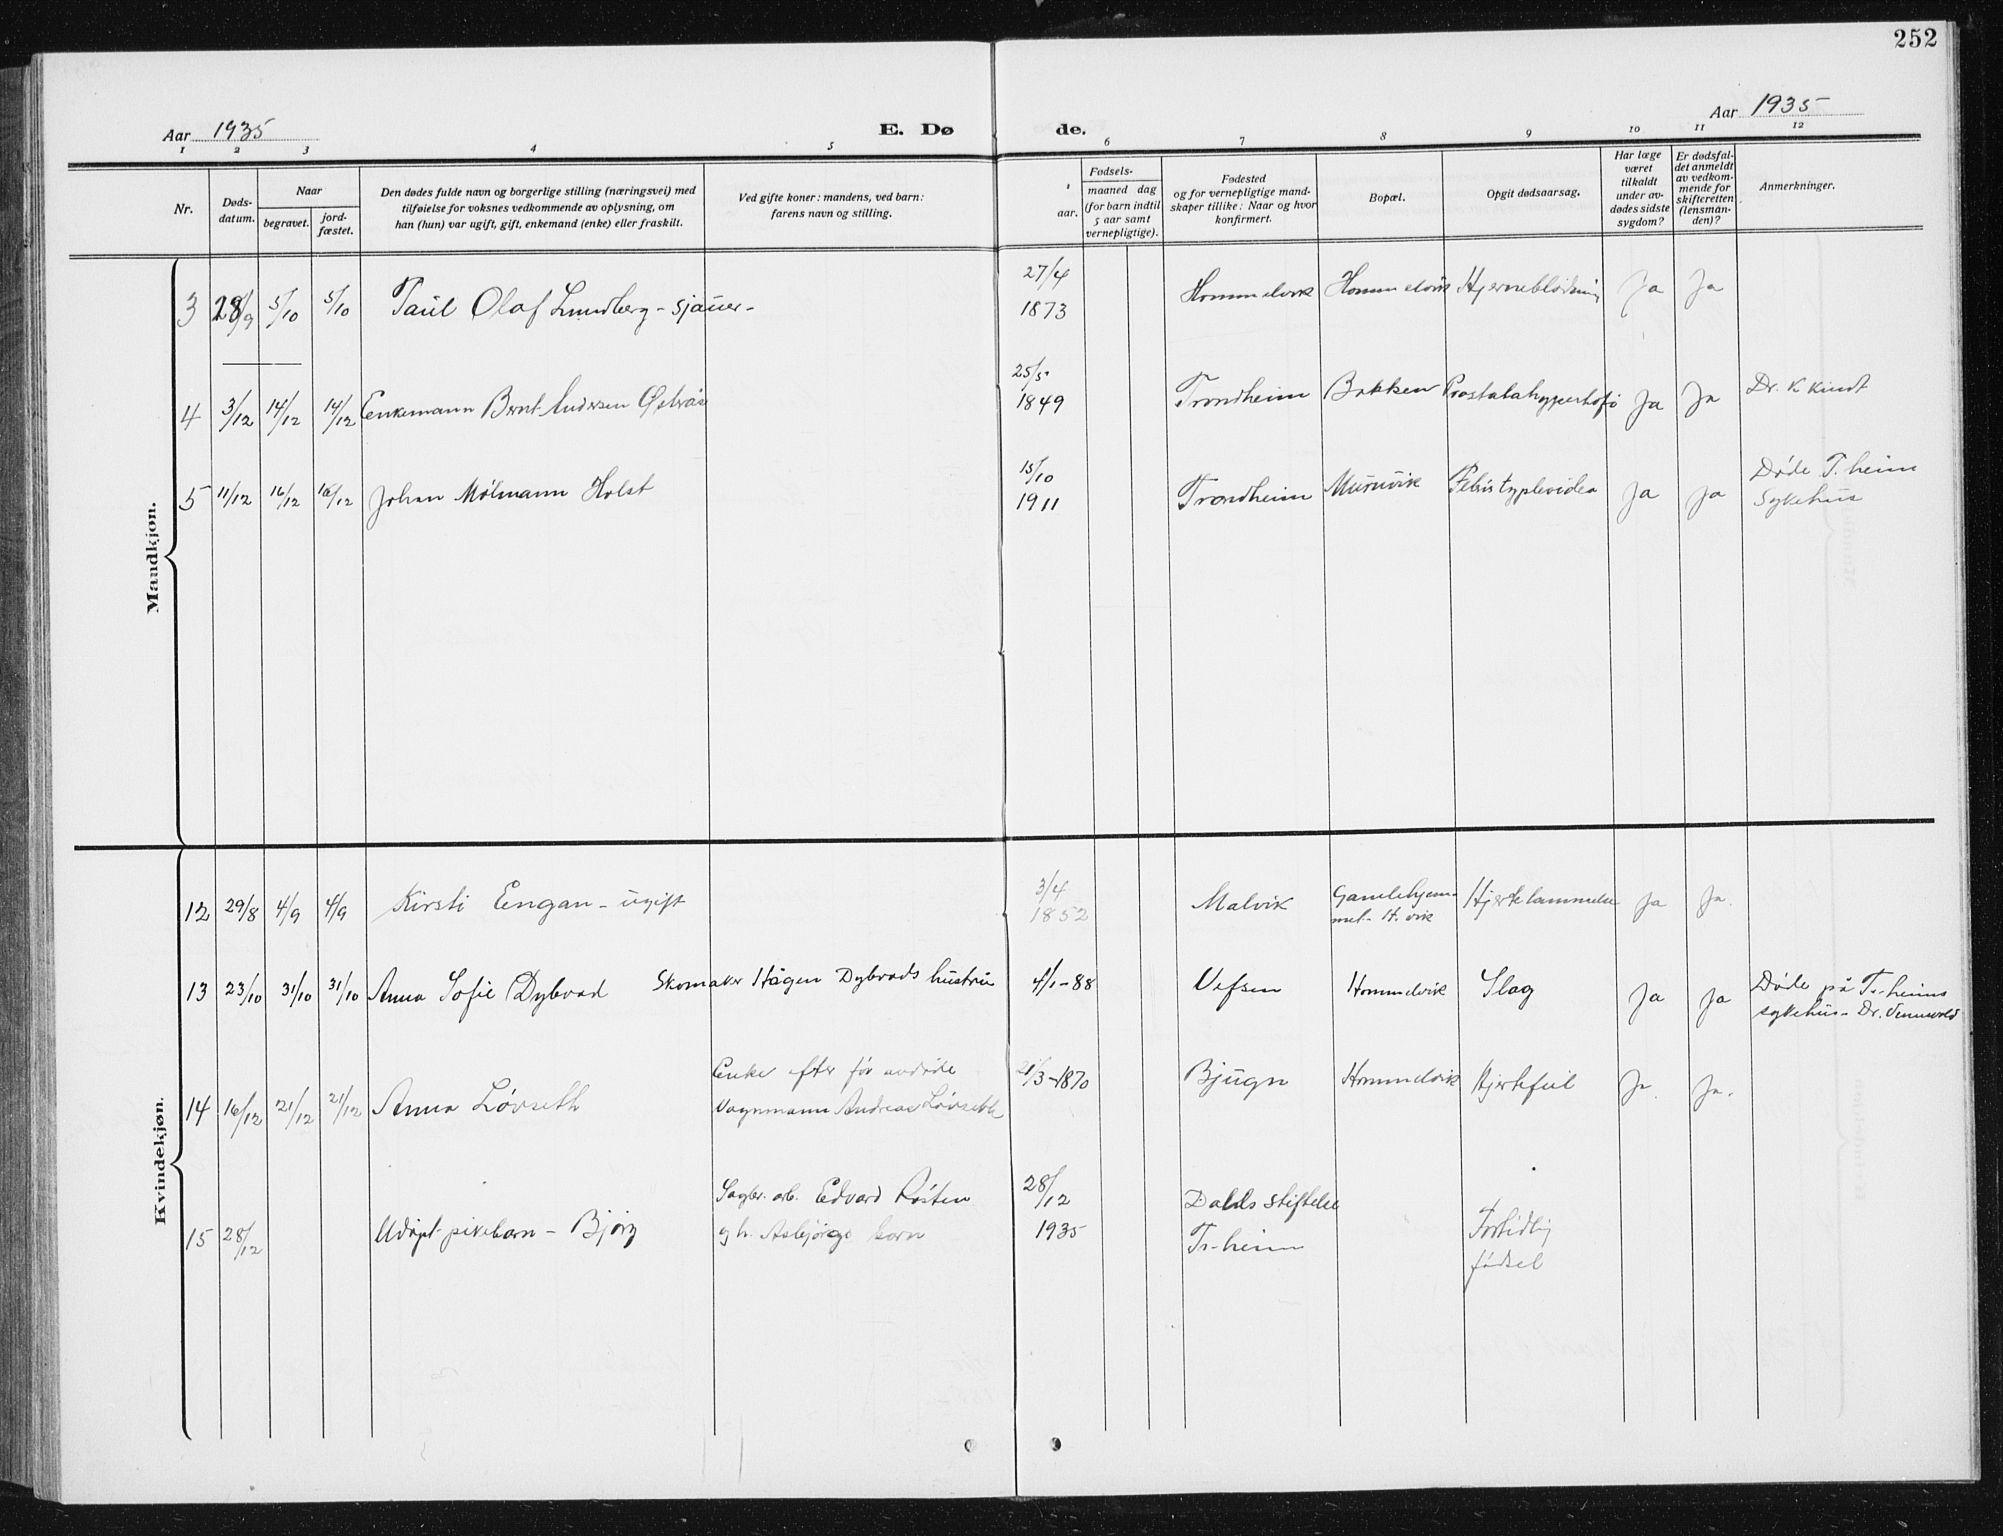 252
Aar 1935
E. Dø
de.
Aar 1935
1 2 3 4 5 6 7 8 9 10 11 12
Nr.
Døds-
datum.
Naar
begravet.
jord-
fæstet.
Den dødes fulde navn og borgerlige stilling (næringsvei) med
tilføielse for voksnes vedkommende av oplysning, om
han (hun) var ugift, gift, enkemand (enke) eller fraskilt.
Ved gifte koner: mandens, ved barn:
farens navn og stilling.
Fødsels-
aar.
maaned dag
(for barn indtil
5 aar samt
vernepligtige).
Fødested
og for vernepligtige mand-
skaper tillike: Naar og hvor
konfirmert.
Bopæl.
Opgit dødsaarsag.
Har læge
været
tilkaldt
under av-
dødes sidste
sygdom?
Er dødsfal-
det anmeldt
av vedkom-
mende for
skifteretten
(lensman-
den)?
Anmerkninger.
Mandkjøn.
3 28/9 5/10 5/10 Paul Olaf Lundberg - Sjauer -
27/4
1873
Hommelvik Hommelvik Hjerneblødning Ja Ja
4 3/12 14/12 14/12 Enkemann Bernt Andersen Østrås
25/5
1849
Trondheim Bakken Prostatahypertrofi Ja Ja Dr. K Kindt
5 11/12 16/12 16/12 Johan Mølmann Holst
15/10
1911
Trondheim Muruvik Ja Ja
Døde T.heim
Sykehus
Kvindekjøn.
12 29/8 4/9 4/9 Kirsti Engan - ugift
3/4
1852
Malvik
Gamlehjem-
met - H.vik
Hjertelammelse Ja Ja.
13 23/10 31/10 31/10 Anna Sofie Dybvad Skomaker Hågen Dybvads hustru 4/1-88 Vefsen Hommelvik Slag Ja Ja
Døde på Tr-heims
sykehus - Dr.
14 16/12 21/12 21/12 Anna Løvseth
Enke efter før avdøde
Vognmann Andreas Løvseth
21/3-1870 Bjugn Hommelvik Hjertefeil Ja. Ja.
15 28/12 Udøpt pikebarn - Bjørg
Sagbr. arb. Edvard Røsten
og h. Asbjørgs barn
28/12
1935
Dahls stiftelse
Tr-heim
Fortidlig
fødsel